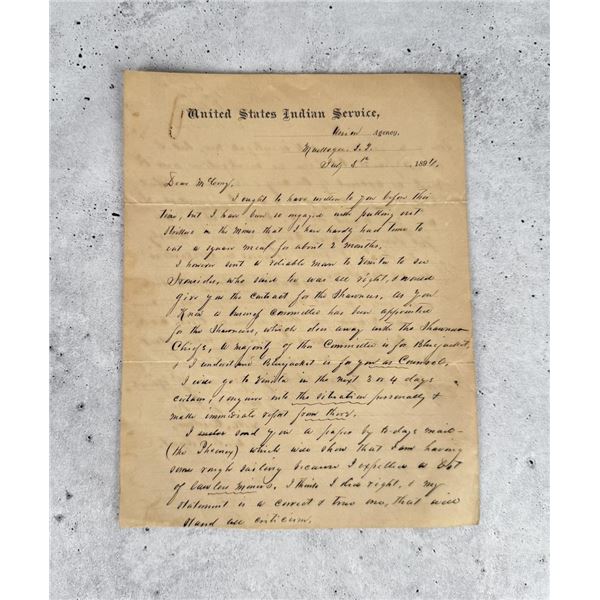 United States Indian Service,
Union Agency,
Muskogee, I.T.
July 5th 1894.
Dear McComy,
I ought to have written to you before this
time, but I have been so engaged with putting out
strikers in the mines that I have hardly had time to
eat a square meal for about 2 months.
I however sent a reliable man to Vinita to see
, who said he was all right, & would
give you the contract for the Shawnees, as you
Know a business committee has been appointed
for the Shawnees, which does away with the Shawnee
Chiefs, & majority of this Committee is for Bluejacket,
& I understand Bluejacket is for you as Counsel.
I will go to Vinita in the next 3 or 4 days
certain, & enquire into the situation personally &
make immediate report from there.
I send you a paper by to days mail-
(the Phoenix) which will show that I am having
some rough sailing because I expelled a lot
of lawless miners. I think I did right, & my
statement is a correct & true one, that will
stand all criticism.